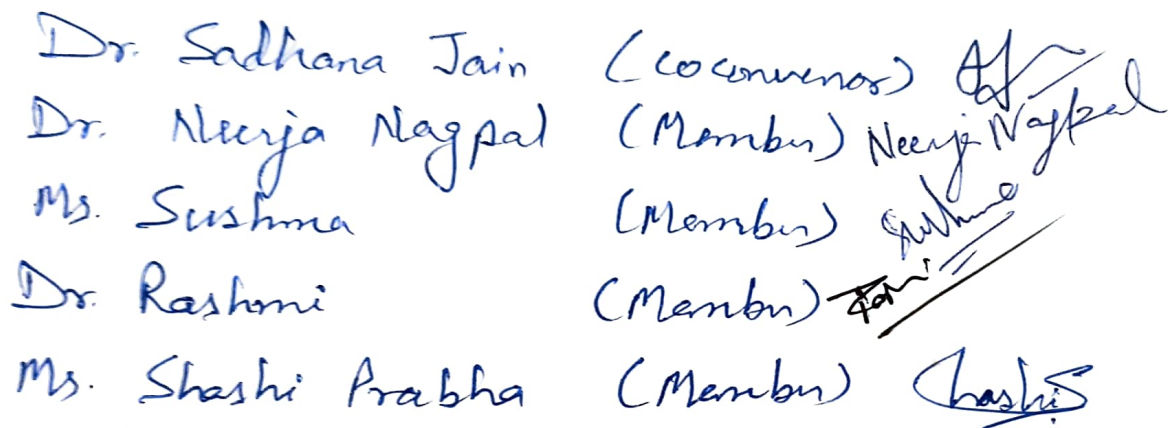 Dr. Sadhana Jain (coconvenor)
Dr. Neerja Nagpal (Member) Neerja Nagpal
Ms. Sushma (Member) Sushma
Dr. Rashmi (Member)
Ms. Shashi Prabha (Member) Shashi